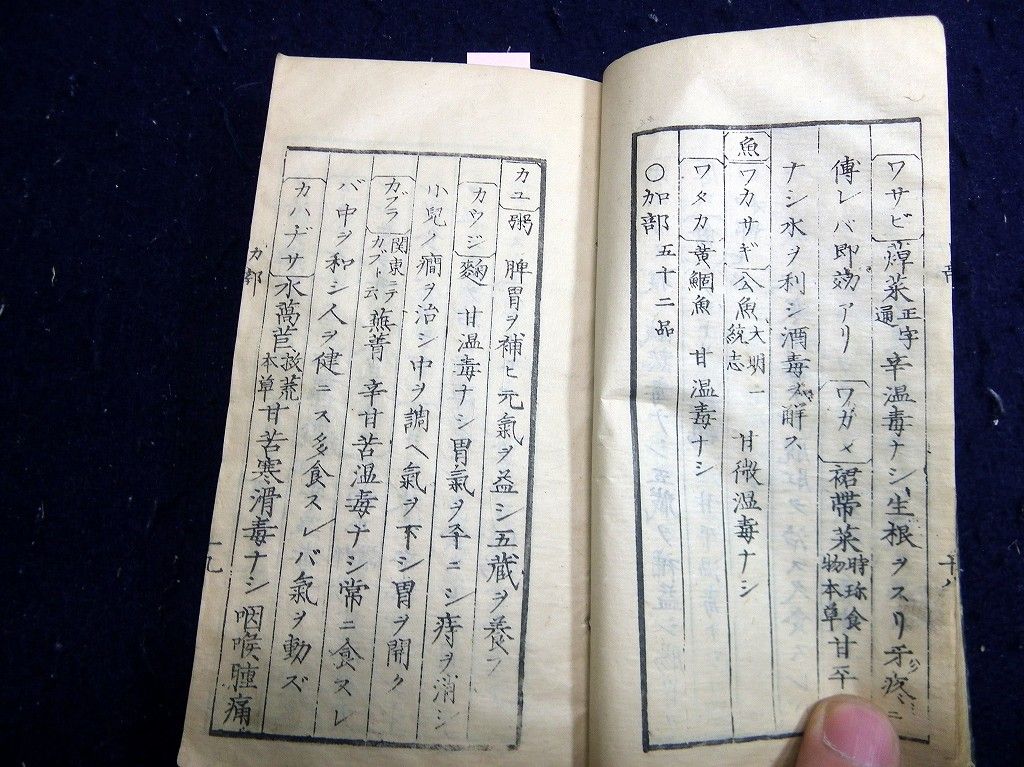 ワサビ 煠菜 正字通 辛温毒ナシ生根ヲスリ牙疼ニ
傅レバ即効アリ ワカメ 裙帯菜 時珍食物本草 甘平
ナシ水ヲ利シ酒毒ヲ解ス
魚 ワカサギ 公魚 大明一統志 甘微温毒ナシ
ワタカ 黄鯝魚 甘温毒ナシ
〇加部 五十二品
十八
カユ 粥 脾胃ヲ補ヒ元氣ヲ益シ五蔵ヲ養フ
カウジ 麹 甘温毒ナシ胃氣ヲ平ニシ痔ヲ消シ
小兒ノ癇ヲ治シ中ヲ調ヘ氣ヲ下シ胃ヲ開ク
カブラ 関東ニテカブト云 蕪菁 辛甘苦温毒ナシ常ニ食スレ
バ中ヲ和シ人ヲ健ニス多食スレバ氣ヲ動ズ
カハヂサ 水萵苣 救荒本草 甘苦寒滑毒ナシ咽喉腫痛
カ部
十九